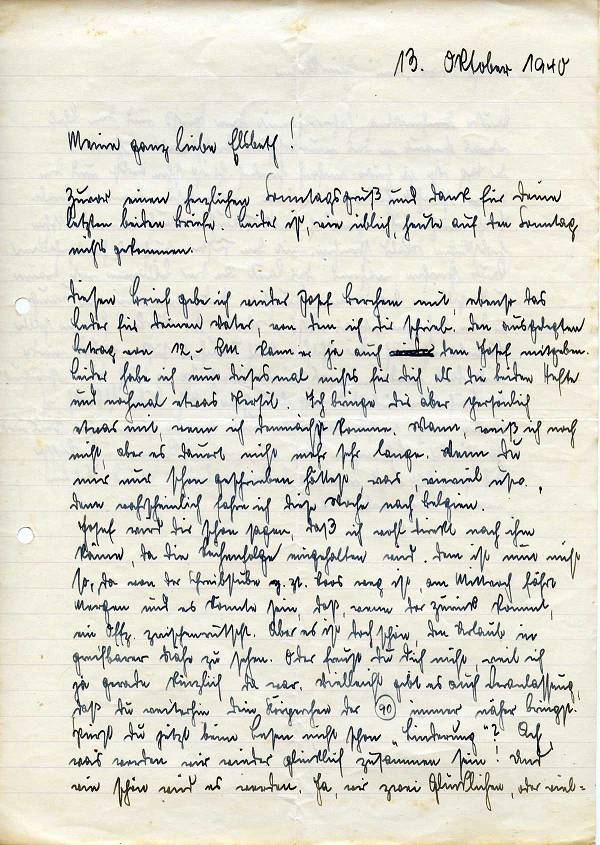 13. Oktober 1940
Meine ganz liebe Elsbeth!
Zuvor einen herzlichen Sonntagsgruß und Dank für Deine
letzten beiden Briefe. Leider ist, wie üblich, heute auf den Sonntag
nichts gekommen.
Diesen Brief gebe ich wieder Josef Berchem mit, ebenso das
Leder für Deinen Vater, von dem ich Dir schrieb. Den ausgelegten
Betrag von 12,- RM kann er ja auch dem Josef mitgeben.
Leider habe ich nun diesesmal nichts für Dich als die beiden Hefte
und nochmal etwas Persil. Ich bringe Dir aber persönlich
etwas mit, wenn ich demnächst komme. Wann, weiß ich noch
nicht, aber es dauert nicht mehr sehr lange. Wenn Du
mir nur schon geschrieben hättest, was, wieviel usw.,
denn wahrscheinlich fahre ich diese Woche nach Belgien.
Josef wird Dir schon sagen, daß ich wohl direkt nach ihm
käme, da die Reihenfolge eingehalten wird. Dem ist nun nicht
so, da von der Schreibstube z. Zt. weg ist, am Mittwoch fährt
Mergen und es könnte sein, daß, wenn der zurück kommt,
ein Offz. zwischenrutscht. Aber es ist doch schön, den Urlaub in
greifbarer Nähe zu sehen. Oder freust Du Dich nicht, weil ich
ja gerade kürzlich da war. Vielleicht gibt es auch Veranlassung,
daß Du weiterhin Dein Körperchen der 90 immer näher bringst.
Spürst Du jetzt beim Lesen nicht schon "Linderung"? Ach
was werden wir wieder glücklich zusammen sein! Und
wie schön wird es werden. Ja, wir zwei Glücklichen, oder viel=